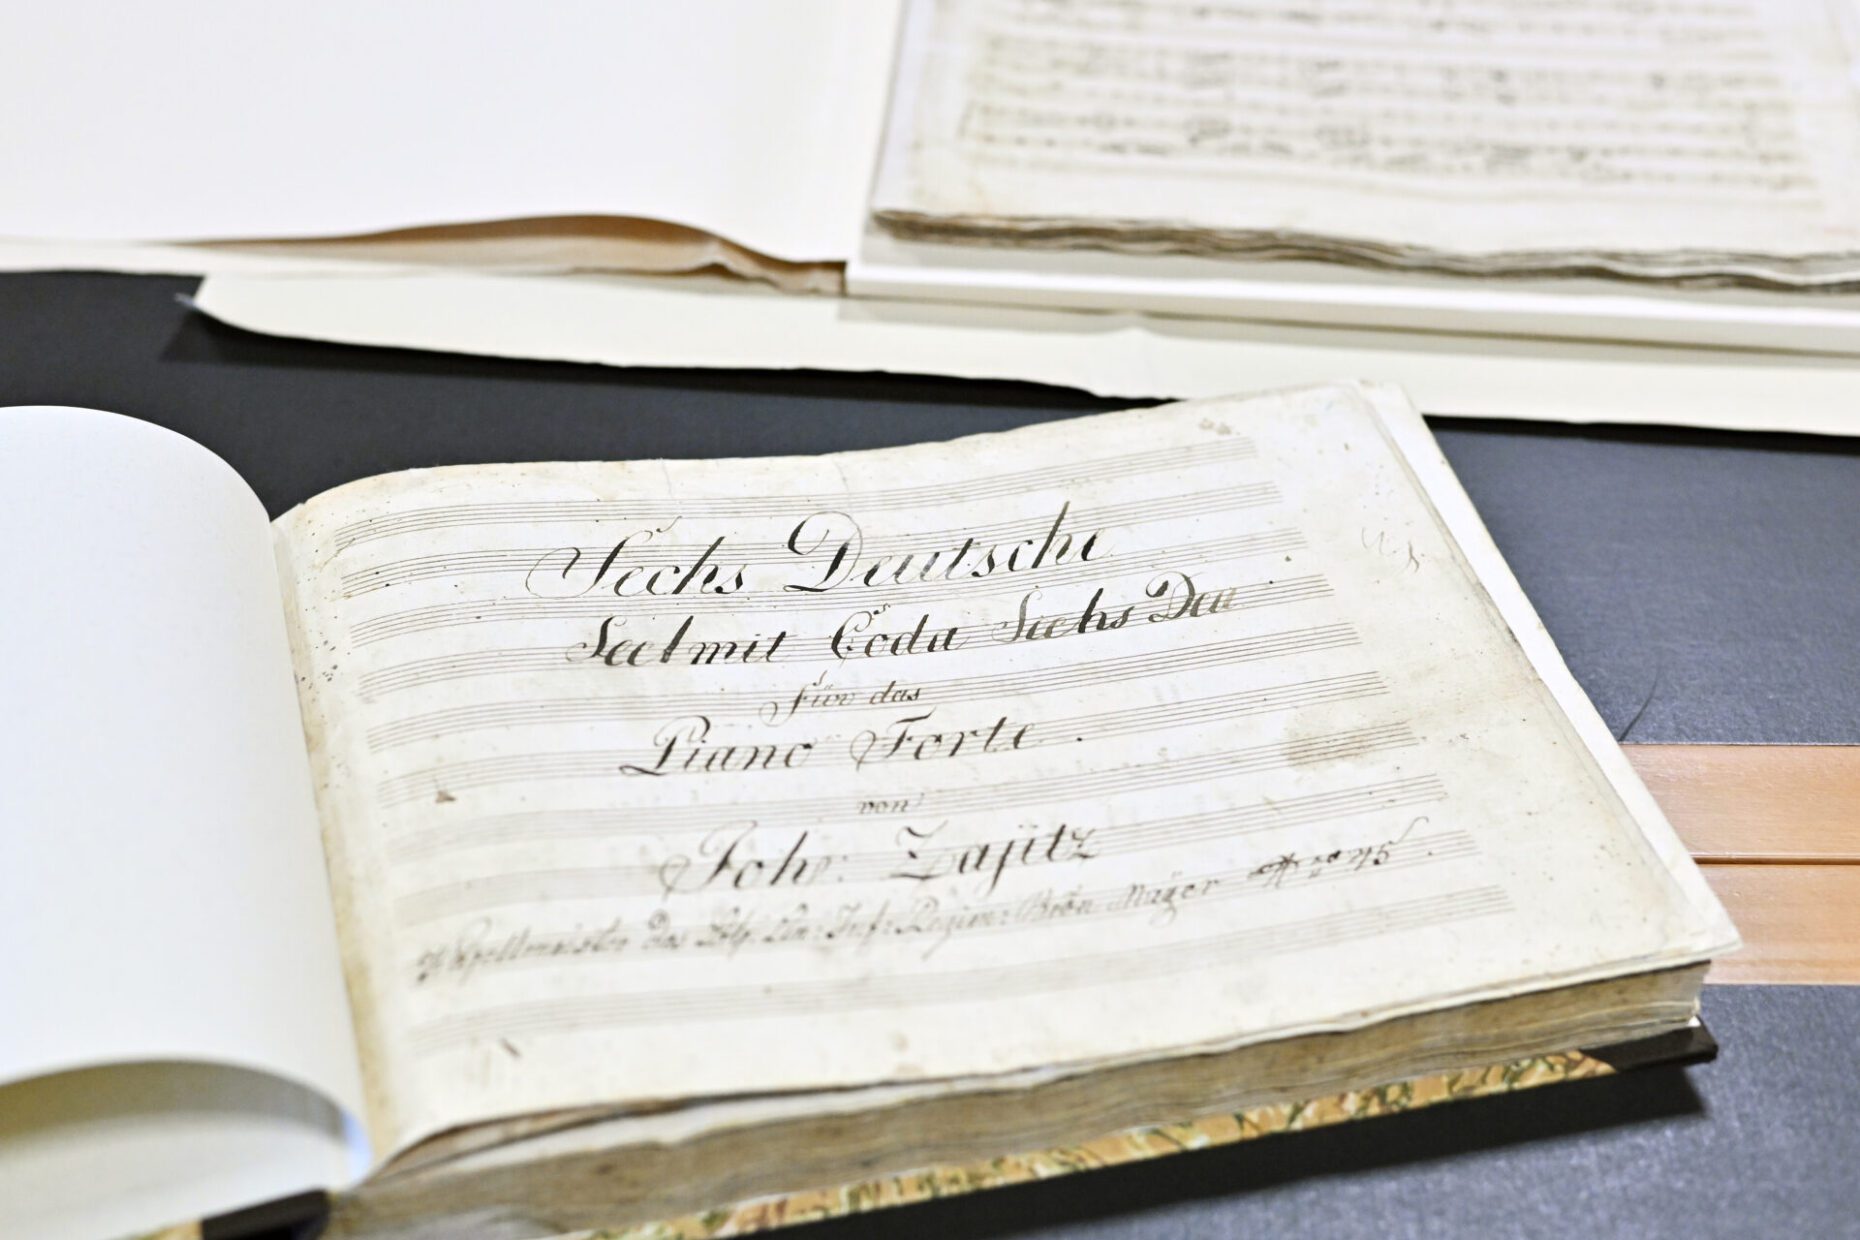 Sechs Deutsche
mit Coda Sechs Deu
für das
Piano Forte.
von
Joh: Zajitz
Kapellmeister des Inf: Regim: Baron Mayer Nro 45.